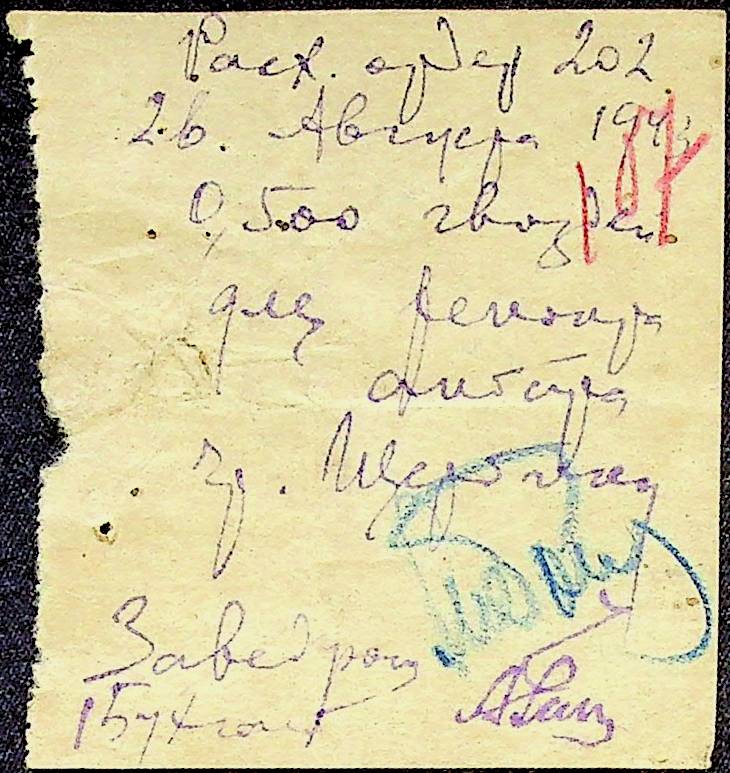 Расх. ордер 202
26. Августа 1943
187
0,500 гвоздей
для ремонта
амбара
гр.
Завед
Бухгалт